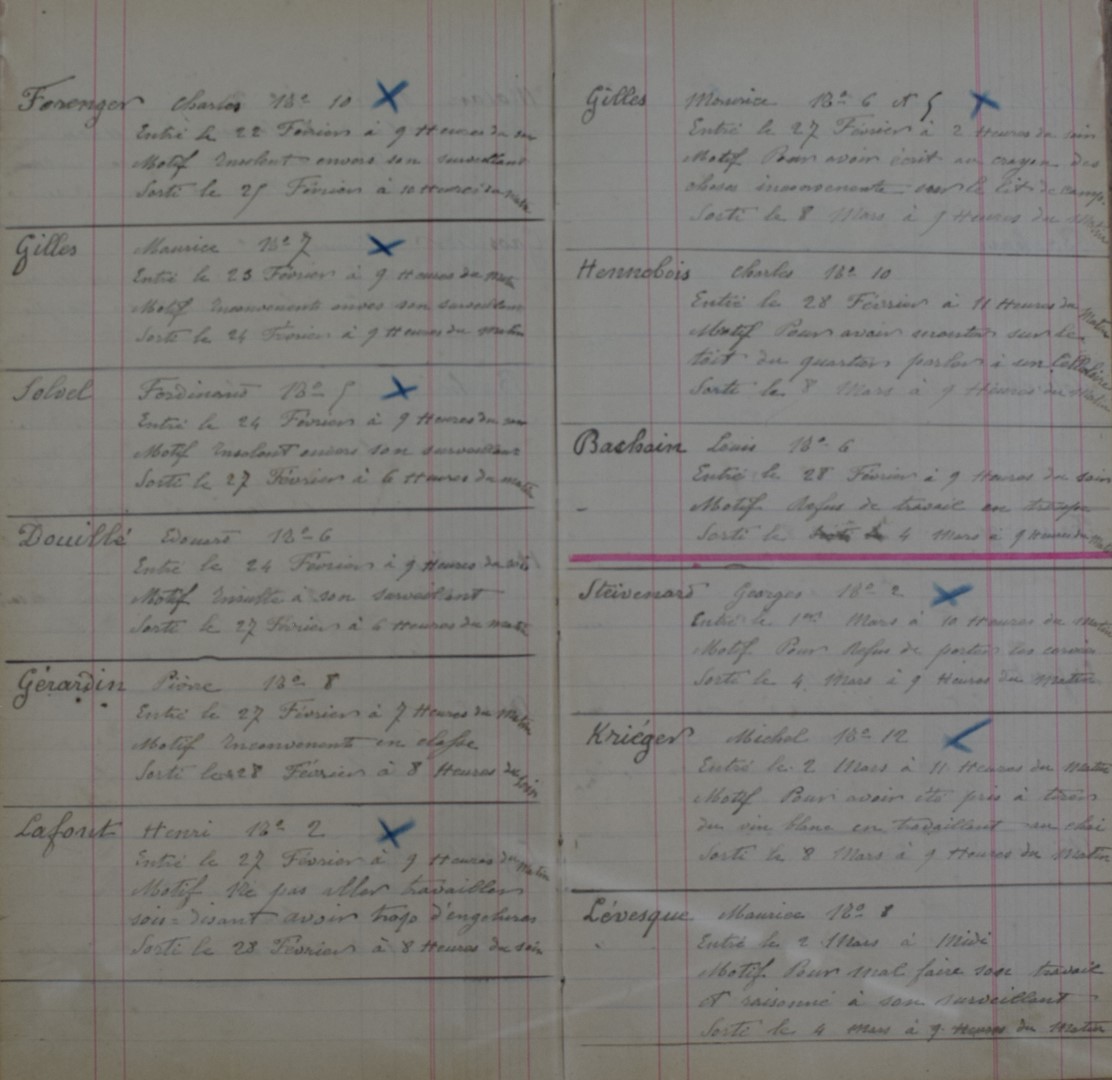 Forenger Charles Bon 10
Entré le 22 Février à 9 Heures du
Motif Insolent envers son surveillant
Sorti le 25 Février à 10 Heures du matin
Gilles Maurice Bon 7
Entré le 23 Février à 9 Heures du matin
Motif Inconvenente envers son surveillant
Sorti le 24 Février à 9 Heures du matin
Solvel Ferdinand Bon 5
Entré le 24 Février à 9 Heures du
Motif Insolent envers son surveillant
Sorti le 27 Février à 6 Heures du matin
Douillé Edouard Bon 6
Entré le 24 Février à 9 Heures du
Motif Insulte à son surveillant
Sorti le 27 Février à 6 Heures du matin
Gérardin Pierre Bon 8
Entré le 27 Février à 7 Heures du Matin
Motif Inconvenente en classe
Sorti le 28 Février à 8 Heures du Soir
Lafont Henri Bon 2
Entré le 27 Février à 9 Heures du Matin
Motif Ne pas aller travailler
sois-disant avoir trop d'engelures
Sorti le 28 Février à 8 Heures du soir
Gilles Maurice Bon 6 et 5
Entré le 27 Février à 2 Heures du soir
Motif Pour avoir écrit au crayon des
choses inconvenente sur le lit de camp
Sorti le 8 Mars à 9 Heures du Matin
Hennebois Charles Bon 10
Entré le 28 Février à 11 Heures du Matin
Motif Pour avoir monter sur le
toit du quartier parler à un Cellulaire
Sorti le 8 Mars à 9 Heures du Matin
Bachain Louis Bon 6
Entré le 28 Février à 9 Heures du soir
Motif Refus de travail en
Sorti le 4 Mars à 9 Heures du Matin
Steivenard Georges Bon 2
Entré le 1er Mars à 10 Heures du Matin
Motif Pour Refus de porter les
Sorti le 4 Mars à 9 Heures du Matin
Kriéger Michel Bon 12
Entré le 2 Mars à 11 Heures du Matin
Motif Pour avoir été pris à tirer
du vin blanc en travaillant au chai
Sorti le 8 Mars à 9 Heures du Matin
Lévesque Maurice Bon 8
Entré le 2 Mars à Midi
Motif Pour mal faire son travail
et raisonné à son surveillant
Sorti le 4 Mars à 9 Heures du Matin